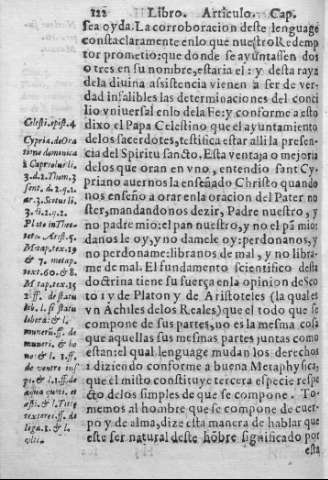 122 Libro. Articulo. Cap.
sea oyda. La corroboracion deste lenguage
consta claramente en lo que nuestro Redemp
tor prometio: que donde se ayuntassen dos
o tres en su nombre, estaria el: y desta raya
dela diuina assistencia vienen a ser de ver-
dad infalibles las determinaciones del conci
lio vniuersal enlo dela Fe: y conforme a esto
dixo el Papa Celestino que el ayuntamiento
delos sacerdotes, testifica estar alli la presen
cia del Spiritu sancto. Esta ventaja o mejoria
delos que oran en vno, entendio sant Cy
priano auernos la enseñado Christo quando
nos enseño a orar en la oracion del Pater no
ster, mandandonos dezir, Padre nuestro, y
no padre mio: el pan nuestro, y no el pā mio:
danos le oy, y no dame le oy: perdonanos, y
no perdoname: libranos de mal, y no libra-
me de mal. El fundamento scientifico desta
doctrina tiene su fuerça en la opinion de Sco
to i y de Platon y de Aristoteles (la qual es
vn Achiles delos Reales) que el todo que se
compone de sus partes, no es la mesma cosa
que aquellas sus mesmas partes juntas como
estan: el qual lenguage mudan los derechos
i diziendo conforme a buena Metaphysica,
que el misto constituye tercera especie respe
cto delos simples de que se compone. To-
memos al hombre que se compone de cuer-
po y de alma, dize esta manera de hablar que
este ser natural deste hōbre significado por
esta
Celesti. epist. 4
Cypria. de Ora
tione dominica
3. d. 2. q. 2.
Plato in Theæ-
teto. Arist. 5.
& 7. metap.
text. 60. & 8.
Metap. tex. 15
2 ff. de statu
libe. l. si statu
de ventre inspi.
aqua quoti.